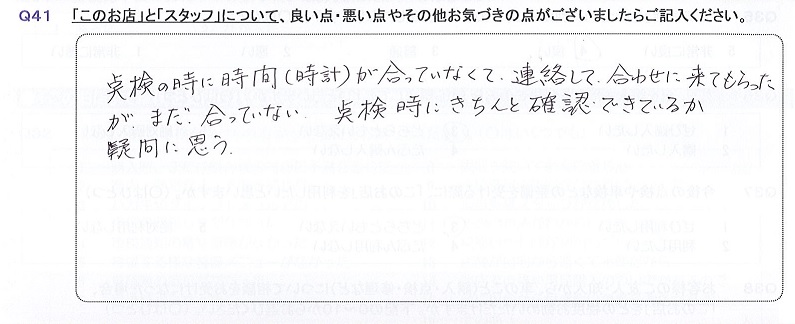 Q41 「このお店」と「スタッフ」について、良い点・悪い点やその他お気づきの点がございましたらご記入ください。
点検の時に時間(時計)が合っていなくて、連絡して、合わせに来てもらった
が、まだ、合っていない。 点検時にきちんと確認できているか
疑問に思う。